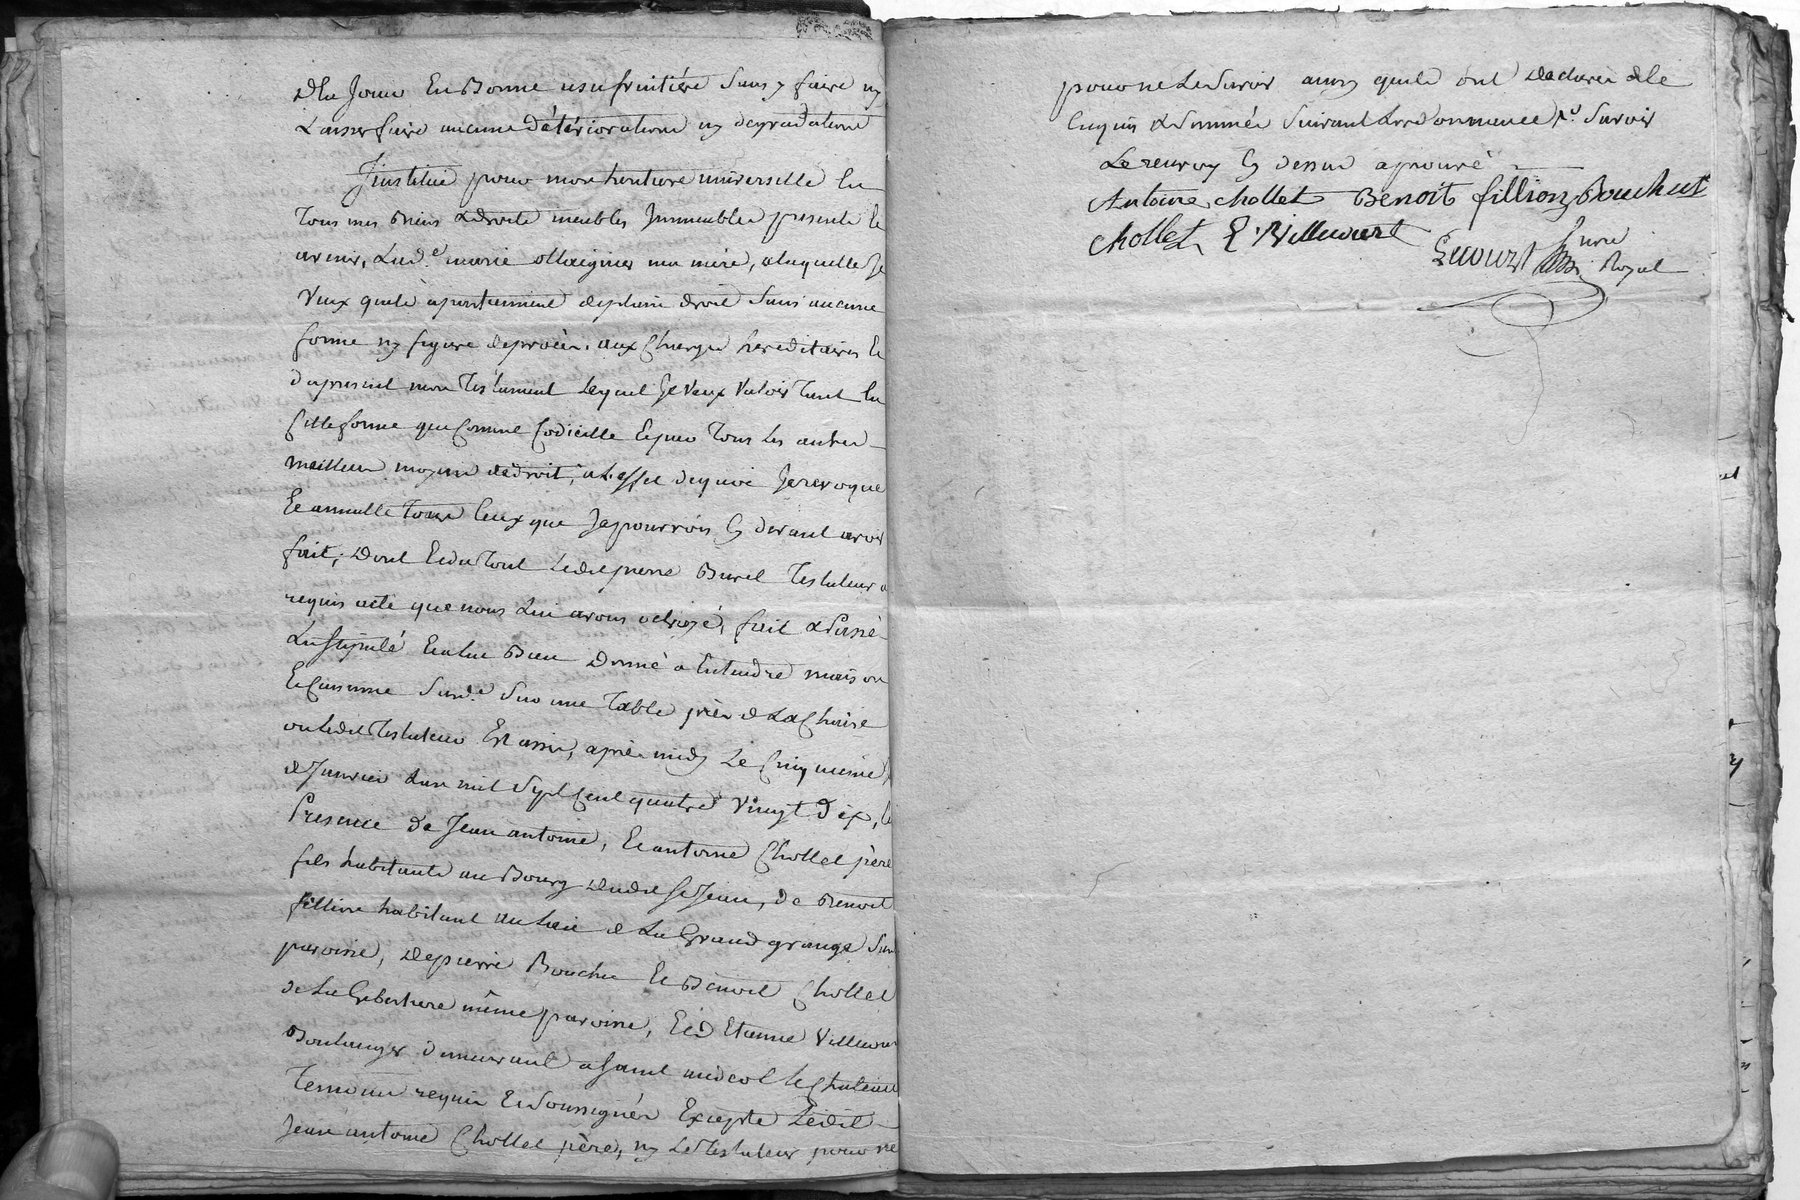 de Jouir En Bonne usufruitière Sans y faire ny
Laisser faire aucune détérioration ny degradation
J'institue pour mon heritiere universelle En
Tous mes Biens & droits meubles Immeubles presents &
avenir, Lad.e marie ollaignier ma mère, a laquelle Je
Veux qu'ils apartiennent de plein droit Sans aucune
forme ny figure de procès, aux Charges hereditaires Et
du present mon Testament Lequel Je Veux Valoir Tant En
Cette forme que Comme Codicille Et par Tous les autres
meilleurs moyens de droit, a l'effet de quoi Je revoque
Et annulle Tous Ceux que Je pourrois Cy devant avoir
fait; Dont Et du Tout Ledit pierre Burel Testateur a
requis acte que nous Lui avons octroyé, fait & Passé
Lu Stipulé Et a lui Bien Donné a Entendre maison
Et Cuisine Susd.e Sur une Table près de La Chaise
ou Ledit Testateur Est assis, après midy Le Cinquieme
de Janvier L'an mil Sept Cent quatre Vingt Dix, En
Presence de Jean antoine, Et antoine Chollet père
fils habitants au Bourg dudit St Jean, de Benoit
fillion habitant au Lieu de La Grand grange Sus
paroisse, de pierre Bouchu Et Benoit Chollet
de La même paroisse, Et D Etienne Villecourt
Boulanger demeurant a Saint medeol le Chateau
Temoins requis Et Soussignés Excepté Ledit
Jean antoine Chollet père, ny Le Testateur pour ne
pour ne Le Savoir ainsy qu'ils ont declaré de Ce
Enquis & Sommés Suivant L'ordonnance Sauf Savoir
Le renvoy Cy dessus aprouvé
Antoine chollet Benoit fillion Bouchut
chollet E Villecourt
Lecourt nore Royal